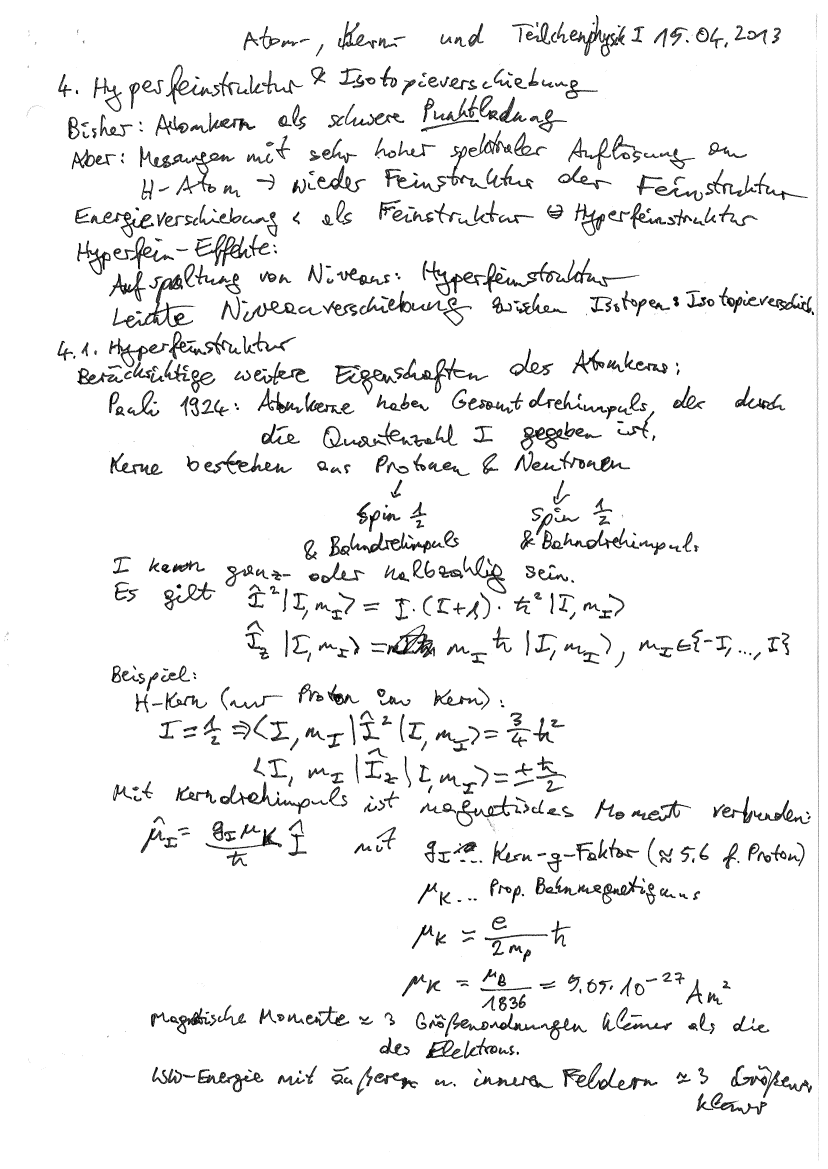 Atom-, Kern- und Teilchenphysik I 15.04.2013
4. Hyperfeinstruktur & Isotopieverschiebung
Bisher: Atomkern als schwere Punktladung
Aber: Messungen mit sehr hoher spektraler Auflösung am
H-Atom → wieder Feinstruktur der Feinstruktur
Energieverschiebung < als Feinstruktur ⇔ Hyperfeinstruktur
Hyperfein-Effekte:
Aufspaltung von Niveaus: Hyperfeinstruktur
Leichte Niveauverschiebung zwischen Isotopen: Isotopieversch.
4.1. Hyperfeinstruktur
Berücksichtige weitere Eigenschaften des Atomkerns:
Pauli 1924: Atomkerne haben Gesamtdrehimpuls, der durch
die Quantenzahl I gegeben ist.
Kerne bestehen aus Protonen & Neutronen
↓ ↓
Spin 1/2 Spin 1/2
& Bahndrehimpuls & Bahndrehimpuls
I kann ganz- oder halbzahlig sein.
Es gilt Î²|I, m_I⟩ = I·(I+1)·ħ²|I, m_I⟩
Î_z |I, m_I⟩ = m_I ħ |I, m_I⟩, m_I ∈ {-I, ..., I}
Beispiel:
H-Kern (nur Proton im Kern):
I = 1/2 ⇒ ⟨I, m_I|Î²|I, m_I⟩ = 3/4 ħ²
⟨I, m_I|Î_z|I, m_I⟩ = ± ħ/2
Mit Kerndrehimpuls ist magnetisches Moment verbunden:
μ̂_I = g_I μ_K/ħ Î mit g_I ... Kern-g-Faktor (≈ 5.6 f. Proton)
μ_K ... Prop. Bahnmagnetismus
μ_K = e/2m_p ħ
μ_K = μ_B/1836 = 5,05·10⁻²⁷ Am²
Magnetische Momente ≈ 3 Größenordnungen kleiner als die
des Elektrons.
WW-Energie mit äußeren u. inneren Feldern ≈ 3 Größeno.
kleiner